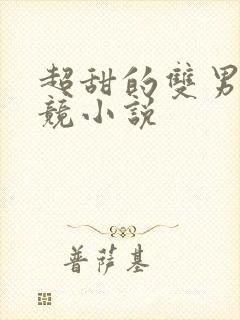 超甜的雙男
競小說
普薩基